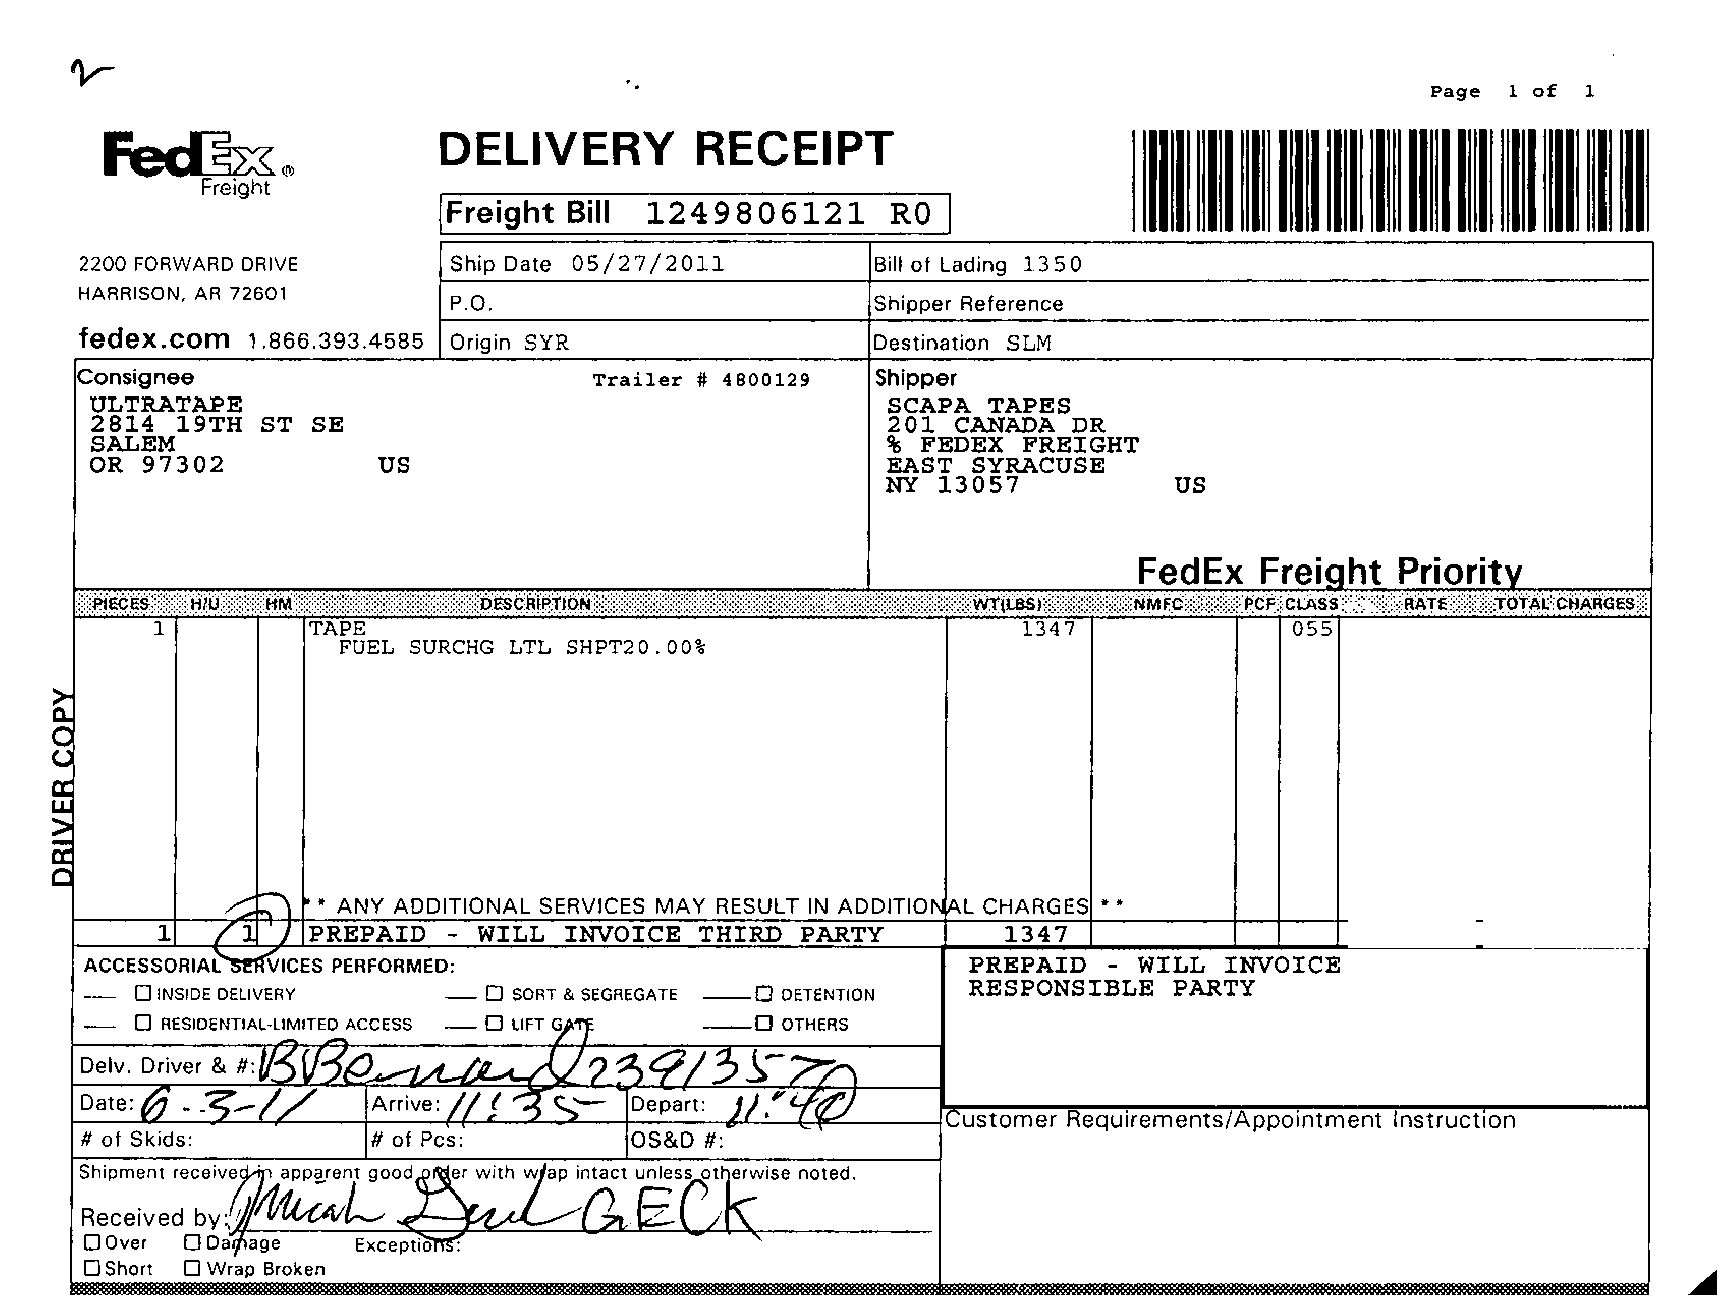 2
Page 1 of 1
FedEx®
Freight
DELIVERY RECEIPT
Freight Bill 1249806121 R0
2200 FORWARD DRIVE
HARRISON, AR 72601
fedex.com 1.866.393.4585
Ship Date 05/27/2011
Bill of Lading 1350
P.O.
Shipper Reference
Origin SYR
Destination SLM
Consignee
Trailer # 4800129
ULTRATAPE
2814 19TH ST SE
SALEM
OR 97302 US
Shipper
SCAPA TAPES
201 CANADA DR
% FEDEX FREIGHT
EAST SYRACUSE
NY 13057 US
FedEx Freight Priority
PIECES H/U HM DESCRIPTION WT(LBS) NMFC PCF CLASS RATE TOTAL CHARGES
1 TAPE 1347 055
FUEL SURCHG LTL SHPT20.00%
DRIVER COPY
** ANY ADDITIONAL SERVICES MAY RESULT IN ADDITIONAL CHARGES **
1 1 PREPAID - WILL INVOICE THIRD PARTY 1347
ACCESSORIAL SERVICES PERFORMED:
INSIDE DELIVERY SORT & SEGREGATE DETENTION
RESIDENTIAL-LIMITED ACCESS LIFT GATE OTHERS
PREPAID - WILL INVOICE
RESPONSIBLE PARTY
Delv. Driver & #: 
Date: 6-3-11 Arrive: 11:35 Depart: 11:40
# of Skids: # of Pcs: OS&D #:
Customer Requirements/Appointment Instruction
Shipment received in apparent good order with wrap intact unless otherwise noted.
Received by: Micah GECK
Over Damage Exceptions:
Short Wrap Broken